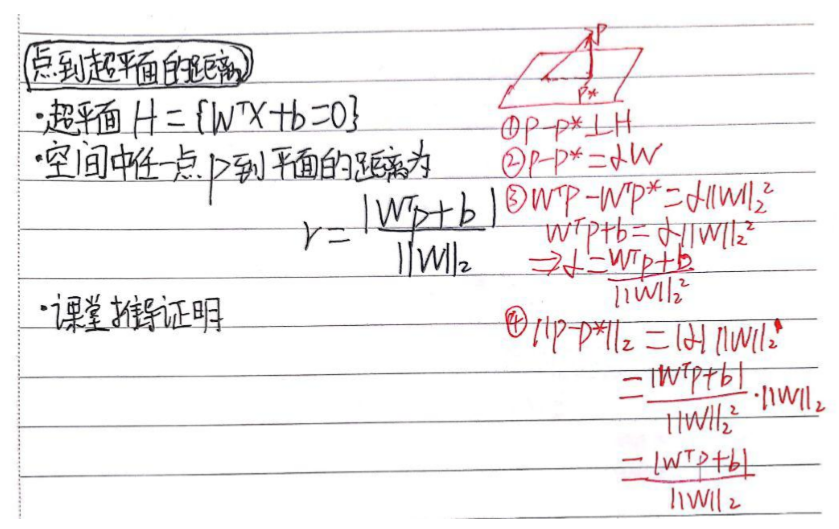 点到超平面的距离
·超平面 H = {WᵀX+b=0}
·空间中任一点p到平面的距离为
r = |Wᵀp+b| / ||W||₂
·课堂推导证明
P
P*
①P-P*⊥H
②P-P*=αW
③WᵀP-WᵀP*=α||W||₂²
WᵀP+b=α||W||₂²
⇒α=WᵀP+b / ||W||₂²
④||P-P*||₂=|α| ||W||₂
=|WᵀP+b| / ||W||₂² ·||W||₂
=|WᵀP+b| / ||W||₂